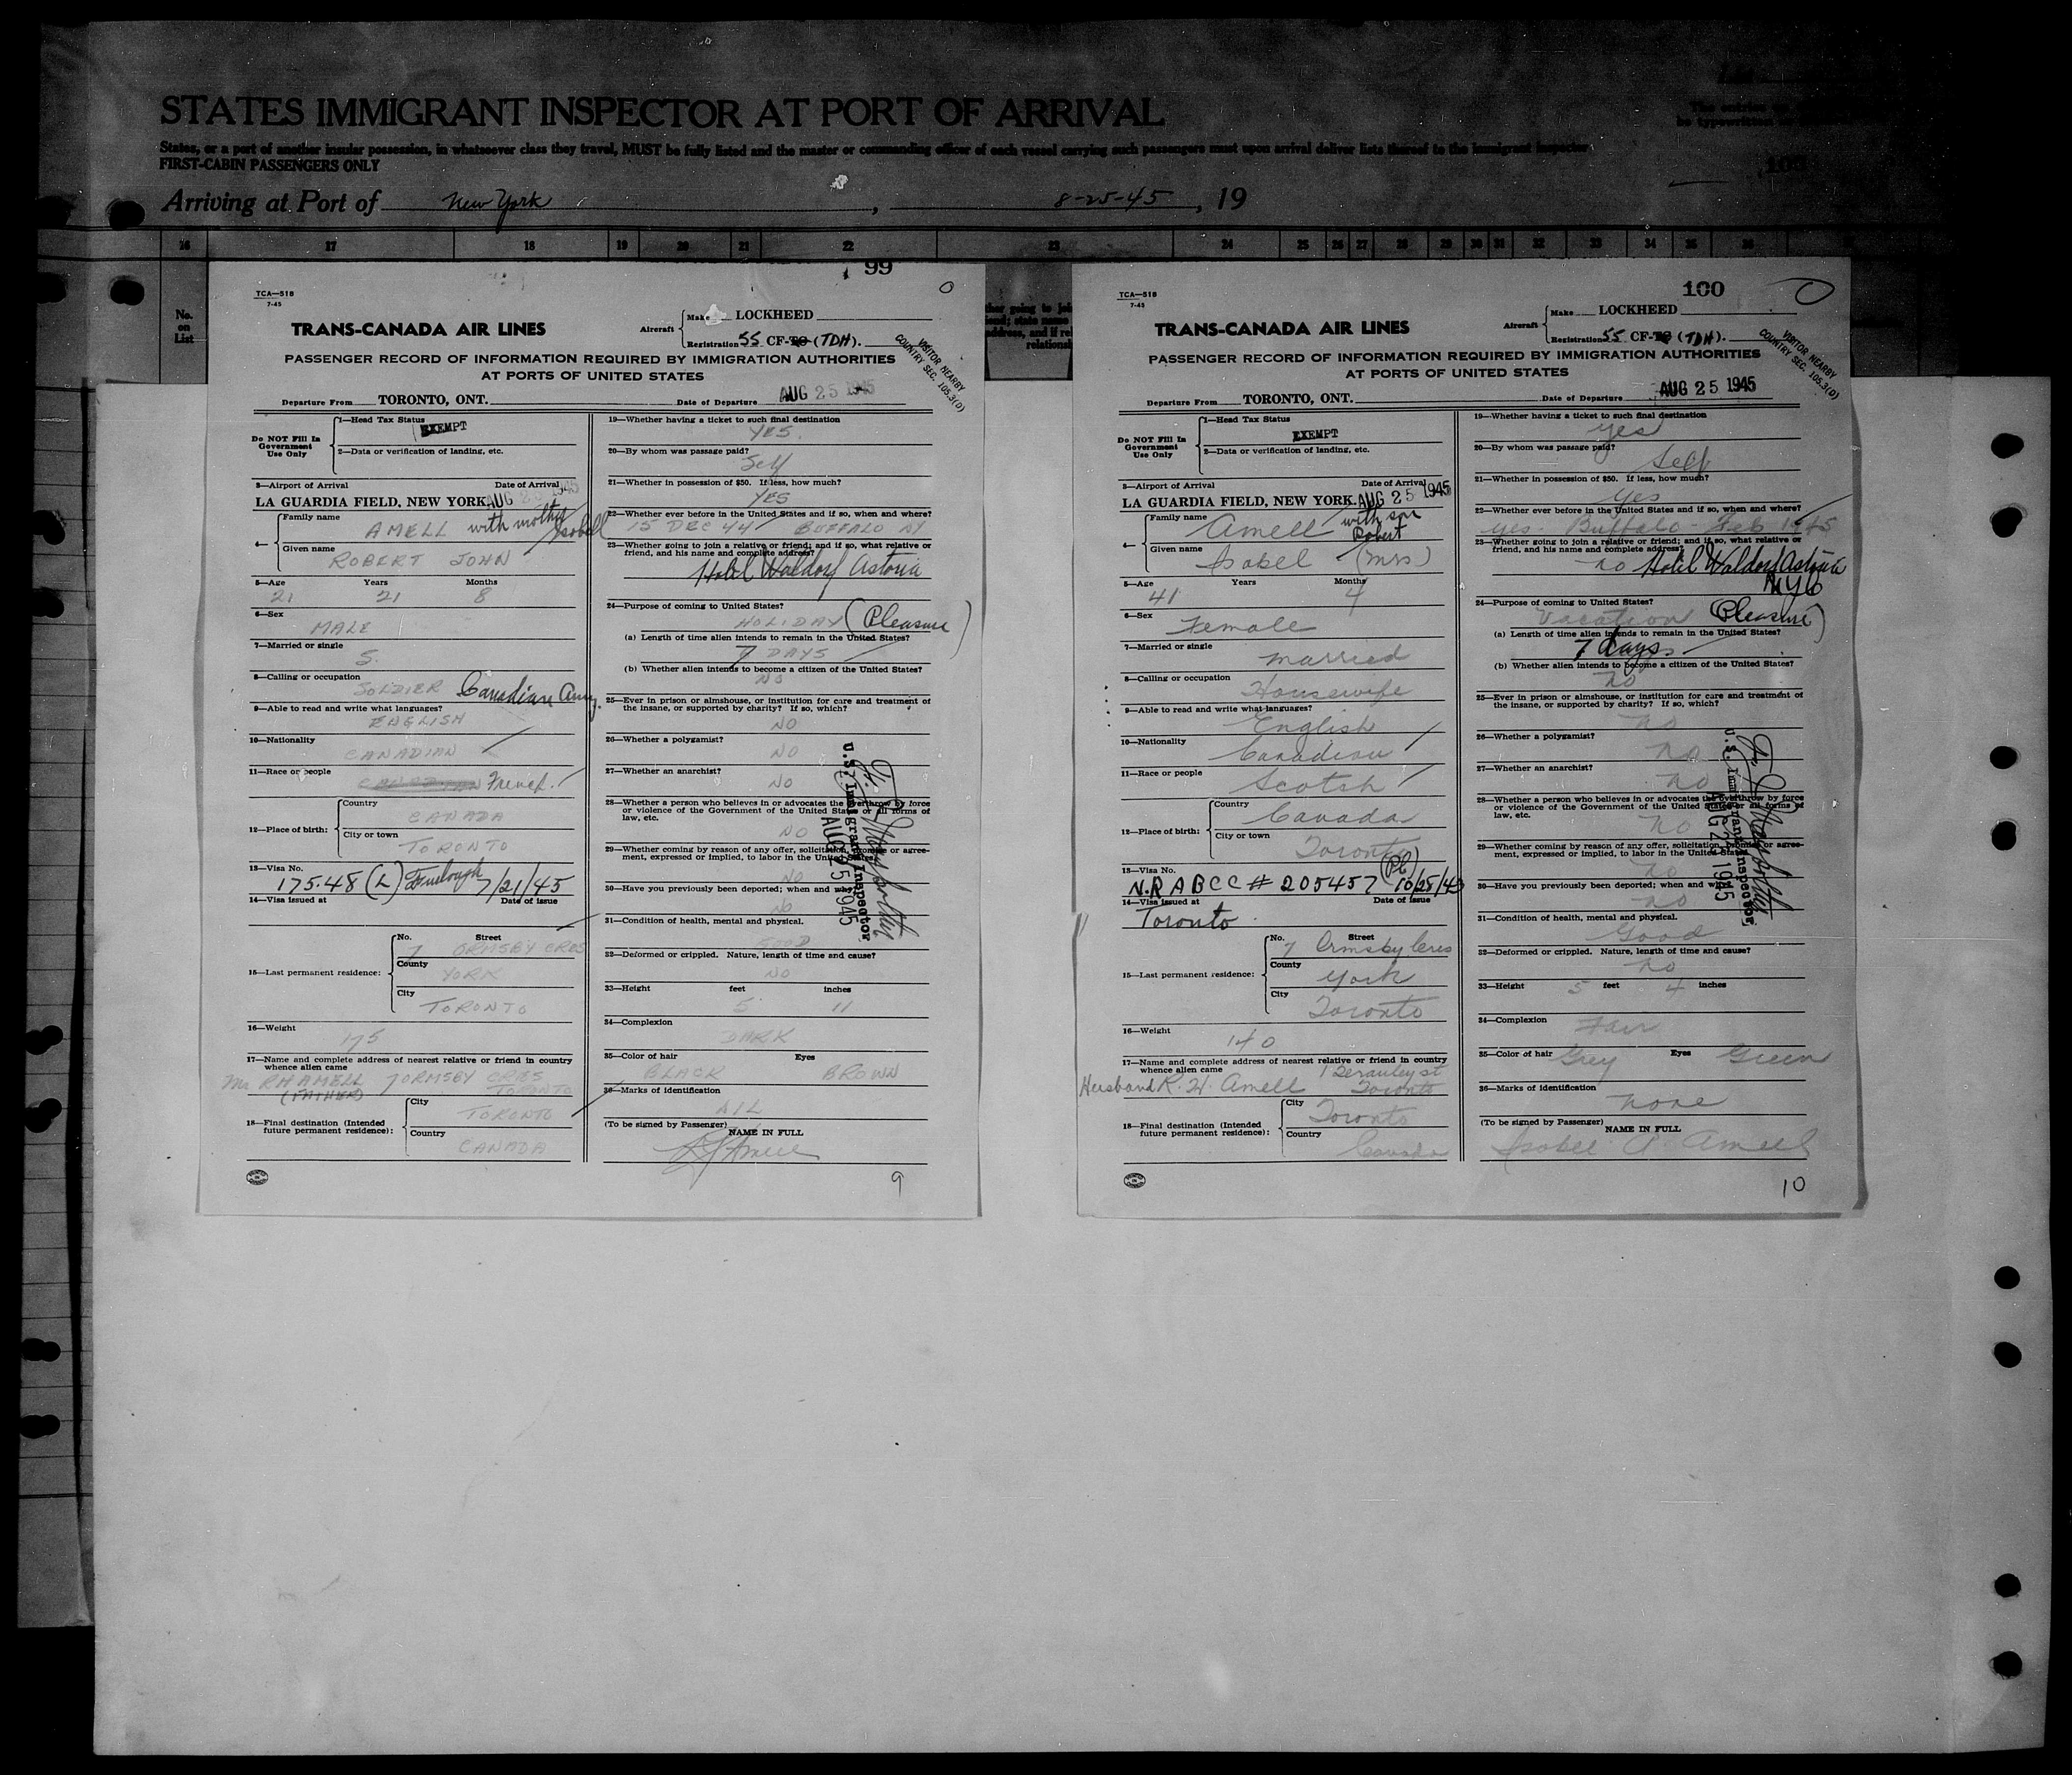 STATES IMMIGRANT INSPECTOR AT PORT OF ARRIVAL
States, or a port of another insular possession, in whatsoever class they travel, MUST be fully listed and the master or commanding officer of each vessel carrying such passengers must upon arrival deliver lists thereof to the immigrant inspector
FIRST-CABIN PASSENGERS ONLY
Arriving at Port of New York, 8-25-45, 19
16 17 18 19 20 21 22 23 24 25 26 27 28 29 30 31 32 33 34 35 36
No. on List
99
TCA—518
7-45
TRANS-CANADA AIR LINES
Aircraft Make LOCKHEED
Registration 55 CF-TC (TDH).
PASSENGER RECORD OF INFORMATION REQUIRED BY IMMIGRATION AUTHORITIES
AT PORTS OF UNITED STATES
VISITOR NEARBY
COUNTRY SEC. 105.3(D)
Departure From TORONTO, ONT. Date of Departure AUG 25 1945
Do NOT Fill In Government Use Only
1—Head Tax Status
EXEMPT
2—Data or verification of landing, etc.
3—Airport of Arrival Date of Arrival
LA GUARDIA FIELD, NEW YORK. AUG 25 1945
4— Family name AMELL with mother Isobell
Given name ROBERT JOHN
5—Age Years Months
21 21 8
6—Sex
MALE
7—Married or single
S.
8—Calling or occupation
SOLDIER Canadian Army.
9—Able to read and write what languages?
ENGLISH
10—Nationality
CANADIAN
11—Race or people
CANADIAN French
12—Place of birth: Country CANADA
City or town TORONTO
13—Visa No.
175.48 (L) Furlough 7/21/45
14—Visa issued at Date of issue
15—Last permanent residence: No. Street
7 ORMSBY CRES
County YORK
City TORONTO
16—Weight
175
17—Name and complete address of nearest relative or friend in country whence alien came
Mr RH AMELL 7 ORMSBY CRES
(FATHER) TORONTO
18—Final destination (Intended future permanent residence): City TORONTO
Country CANADA
19—Whether having a ticket to such final destination
YES.
20—By whom was passage paid?
Self
21—Whether in possession of $50. If less, how much?
YES
22—Whether ever before in the United States and if so, when and where?
15 DEC 44 BUFFALO NY
23—Whether going to join a relative or friend; and if so, what relative or friend, and his name and complete address?
Hotel Waldorf Astoria
24—Purpose of coming to United States?
HOLIDAY (Pleasure)
(a) Length of time alien intends to remain in the United States?
7 DAYS
(b) Whether alien intends to become a citizen of the United States?
NO
25—Ever in prison or almshouse, or institution for care and treatment of the insane, or supported by charity? If so, which?
NO
26—Whether a polygamist?
NO
27—Whether an anarchist?
NO
28—Whether a person who believes in or advocates the overthrow by force or violence of the Government of the United States or all forms of law, etc.
NO
29—Whether coming by reason of any offer, solicitation, promise or agreement, expressed or implied, to labor in the United States?
NO
30—Have you previously been deported; when and why?
NO
31—Condition of health, mental and physical.
GOOD
32—Deformed or crippled. Nature, length of time and cause?
NO
33—Height feet inches
5 11
34—Complexion
DARK
35—Color of hair Eyes
BLACK BROWN
36—Marks of identification
NIL
(To be signed by Passenger) NAME IN FULL
RJ Amell
U.S. Immigrant Inspector
AUG 25 1945
9
100
TCA—518
7-45
TRANS-CANADA AIR LINES
Aircraft Make LOCKHEED
Registration 55 CF-TC (TDH).
PASSENGER RECORD OF INFORMATION REQUIRED BY IMMIGRATION AUTHORITIES
AT PORTS OF UNITED STATES
VISITOR NEARBY
COUNTRY SEC. 105.3(D)
Departure From TORONTO, ONT. Date of Departure AUG 25 1945
Do NOT Fill In Government Use Only
1—Head Tax Status
EXEMPT
2—Data or verification of landing, etc.
3—Airport of Arrival Date of Arrival
LA GUARDIA FIELD, NEW YORK. AUG 25 1945
4— Family name Amell with son Robert
Given name Isobel (Mrs)
5—Age Years Months
41 4
6—Sex
Female
7—Married or single
Married
8—Calling or occupation
Housewife
9—Able to read and write what languages?
English
10—Nationality
Canadian
11—Race or people
Scotch
12—Place of birth: Country Canada
City or town Toronto
13—Visa No.
N.R A B C C # 205457 (Pl) 10/25/43
14—Visa issued at Date of issue
Toronto
15—Last permanent residence: No. Street
7 Ormsby Cres
County York
City Toronto
16—Weight
140
17—Name and complete address of nearest relative or friend in country whence alien came
Husband R. H. Amell Toronto
18—Final destination (Intended future permanent residence): City Toronto
Country Canada
19—Whether having a ticket to such final destination
yes
20—By whom was passage paid?
Self
21—Whether in possession of $50. If less, how much?
Yes
22—Whether ever before in the United States and if so, when and where?
yes - Buffalo - Feb 1945
23—Whether going to join a relative or friend; and if so, what relative or friend, and his name and complete address?
no Hotel Waldorf Astoria
NYC
24—Purpose of coming to United States?
Vacation (Pleasure)
(a) Length of time alien intends to remain in the United States?
7 days
(b) Whether alien intends to become a citizen of the United States?
no
25—Ever in prison or almshouse, or institution for care and treatment of the insane, or supported by charity? If so, which?
no
26—Whether a polygamist?
no
27—Whether an anarchist?
no
28—Whether a person who believes in or advocates the overthrow by force or violence of the Government of the United States or all forms of law, etc.
no
29—Whether coming by reason of any offer, solicitation, promise or agreement, expressed or implied, to labor in the United States?
no
30—Have you previously been deported; when and why?
no
31—Condition of health, mental and physical.
Good
32—Deformed or crippled. Nature, length of time and cause?
no
33—Height 5 feet 4 inches
34—Complexion Fair
35—Color of hair Grey Eyes Green
36—Marks of identification
none
(To be signed by Passenger) NAME IN FULL
Isobel A Amell
U.S. Immigrant Inspector
AUG 25 1945
10